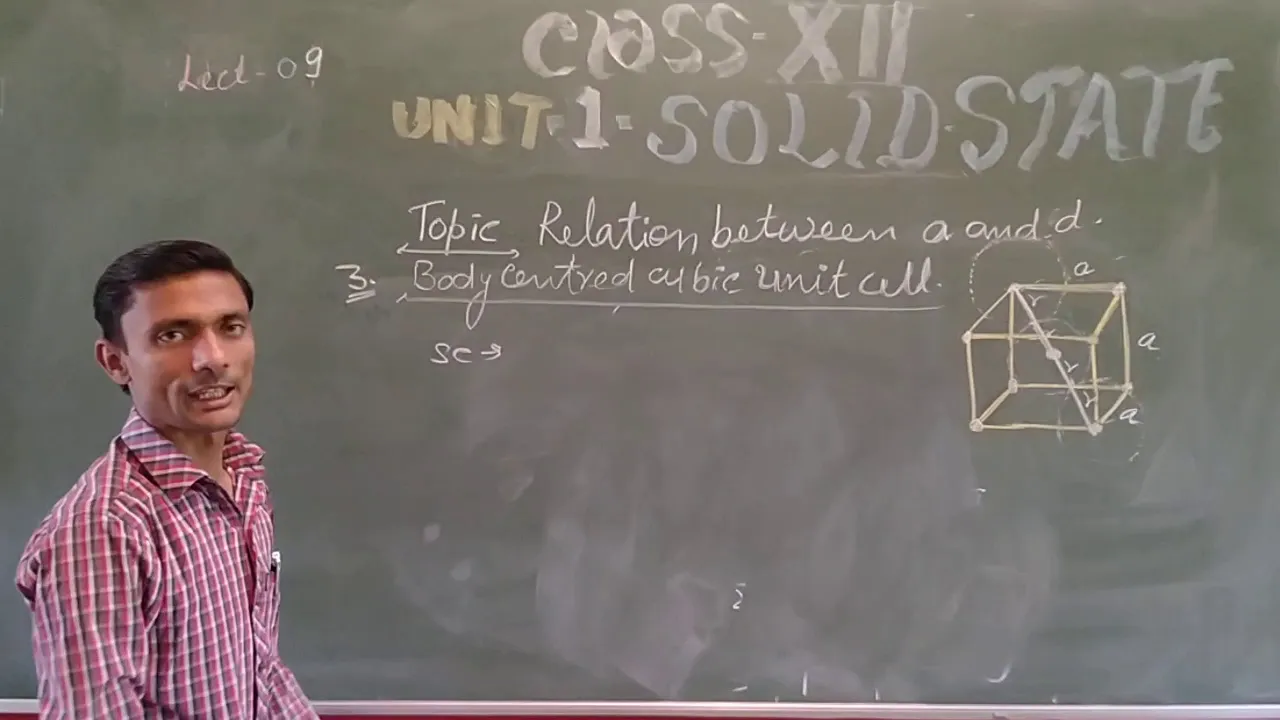 Lect-09
CLASS-XII
UNIT-1-SOLID STATE
Topic Relation between a and d.
3. Body centred cubic unit cell.
SC →
a
r
a
r
r
a